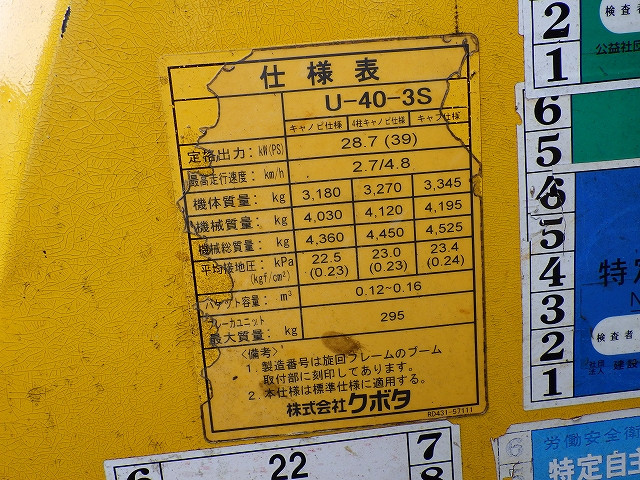 仕様表
U-40-3S
キャノピ仕様 4柱キャノピ仕様 キャブ仕様
定格出力: kW(PS) 28.7 (39)
最高走行速度: km/h 2.7/4.8
機体質量: kg 3,180 3,270 3,345
機械質量: kg 4,030 4,120 4,195
機械総質量: kg 4,360 4,450 4,525
平均接地圧: kPa 22.5 23.0 23.4
(kgf/cm²) (0.23) (0.23) (0.24)
バケット容量: m³ 0.12~0.16
ブレーカユニット
最大質量: kg 295
〈備考〉
1. 製造番号は旋回フレームのブーム
取付部に刻印してあります。
2. 本仕様は標準仕様に適用する。
株式会社クボタ
RD431-57111
2
1
検査者
公益社団
6
5
6
5
4
3
2
1
特定
検査者
建設
6
22
7
8
6
労働安全衛
特定自主